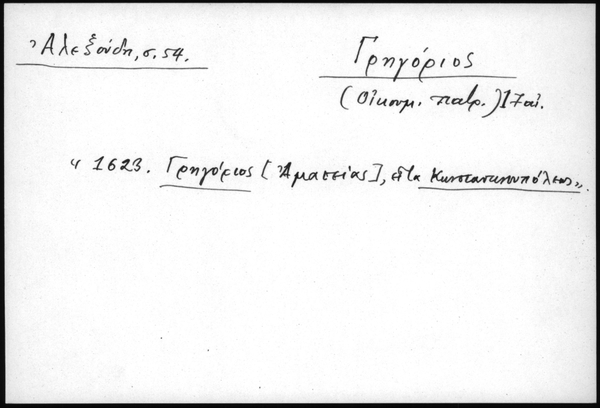 Ἀλεξούδη, σ. 54.
Γρηγόριος
(Οἰκουμ. πατρ.) 17 αἰ.
« 1623. Γρηγόριος [Ἀμασείας], εἶτα Κωνσταντινουπόλεως».